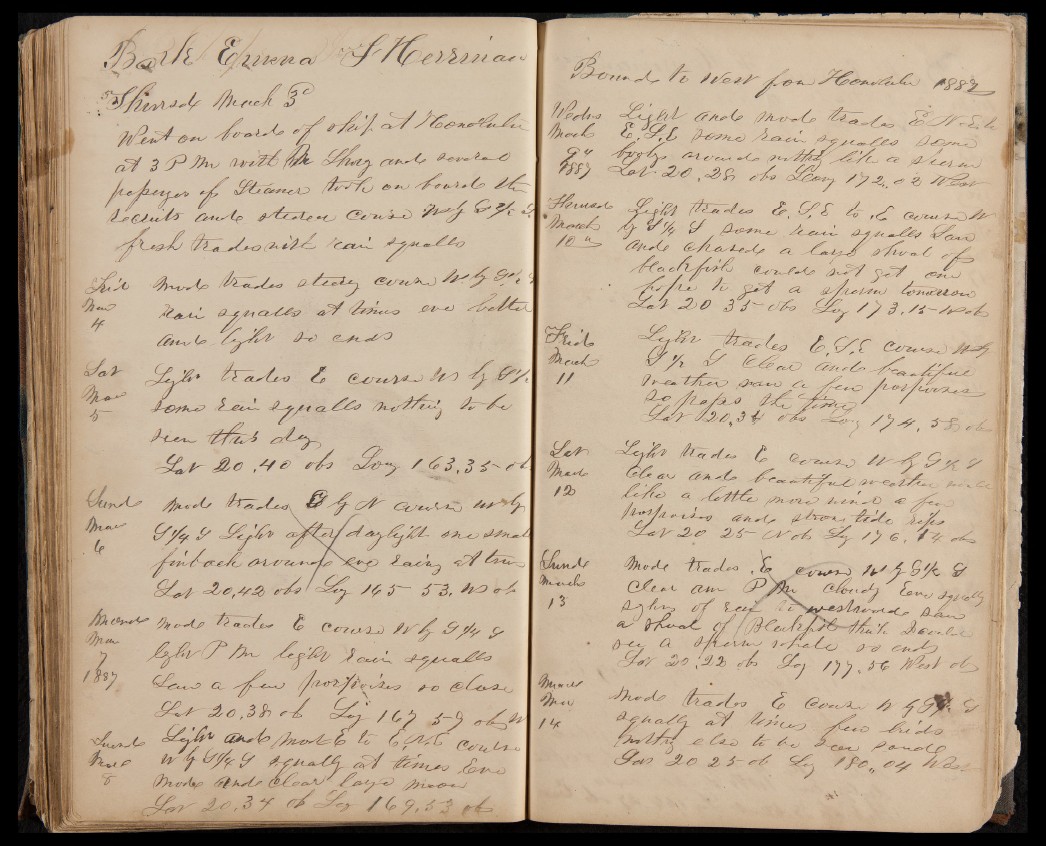 Bark Emma F Herriman
Thursd March 3d
Went on board of ship at Honolulu
at 3 P M with the and several
of Steamer took on board the
and steered course W by S ½ S
fresh trades with rain squalls
Frid Mar 4 Mode trades steering course W by S ½ S
rain squalls at times eve
and light so ends
Sat Mar 5 Light trades E course W by S ½
some rain squalls nothing to be
seen this day
Lat 20,40 obs Long 163,35 ob
Sund Mar 6 Mod trades E by N course W by
S ¼ S Light after daylight one small
finback around eve rainy at times
Lat 20,42 obs Log 165-53, W ob
Mar 7 1887 Mode trades E course W by S ¼ S
light P M light rain squalls
Saw a few porpoises so close
Lat 20,38 ob Log 167 59 ob W
Mar 8 Light and Mod E to E.N.E course
W by S ¼ S squally at times Eve
Mode and Clear large moon
Lat 20,34 ob Log 169,53 ob
Bound to West from Honolulu 1887
Wedns Light and mode trades E.N.E to
March E.S.E some rain squalls some
9" around nothing like a
1887 Lat 20,28 obs Long 172,02 West
March Light trades E.S.E to E course W
10 by S ¼ S some rain squalls Saw
and chased a large shoal of
blackfish could not get one
hope to get a sperm tomorrow
Lat 20 35 obs Log 173,15 W ob
Frid Light trades E.S.E course W by
March S ½ S Clear and beautiful
11 weather saw a few porpoises
so the time
Lat 20,34 obs Log 174,58 ob
Sat Light trades E course W by S ½ S
March Clear and beautiful weather
12 like a little more wind a few
porpoises and strong tide rips
Lat 20 25 N ob Lg 176,14 ob
Sund Mode trades E course W by S ½ S
March Clear am P M cloudy Eve squally
13 signs of rain to westward saw
a shoal of Blackfish think
see a sperm whale so ends
Lat 20,22 ob Log 177,56 West ob
Mar 14 Mode trades E course W by S S
squally at times few birds
nothing else to be seen
Lat 20 25 ob Log 180,,04 West